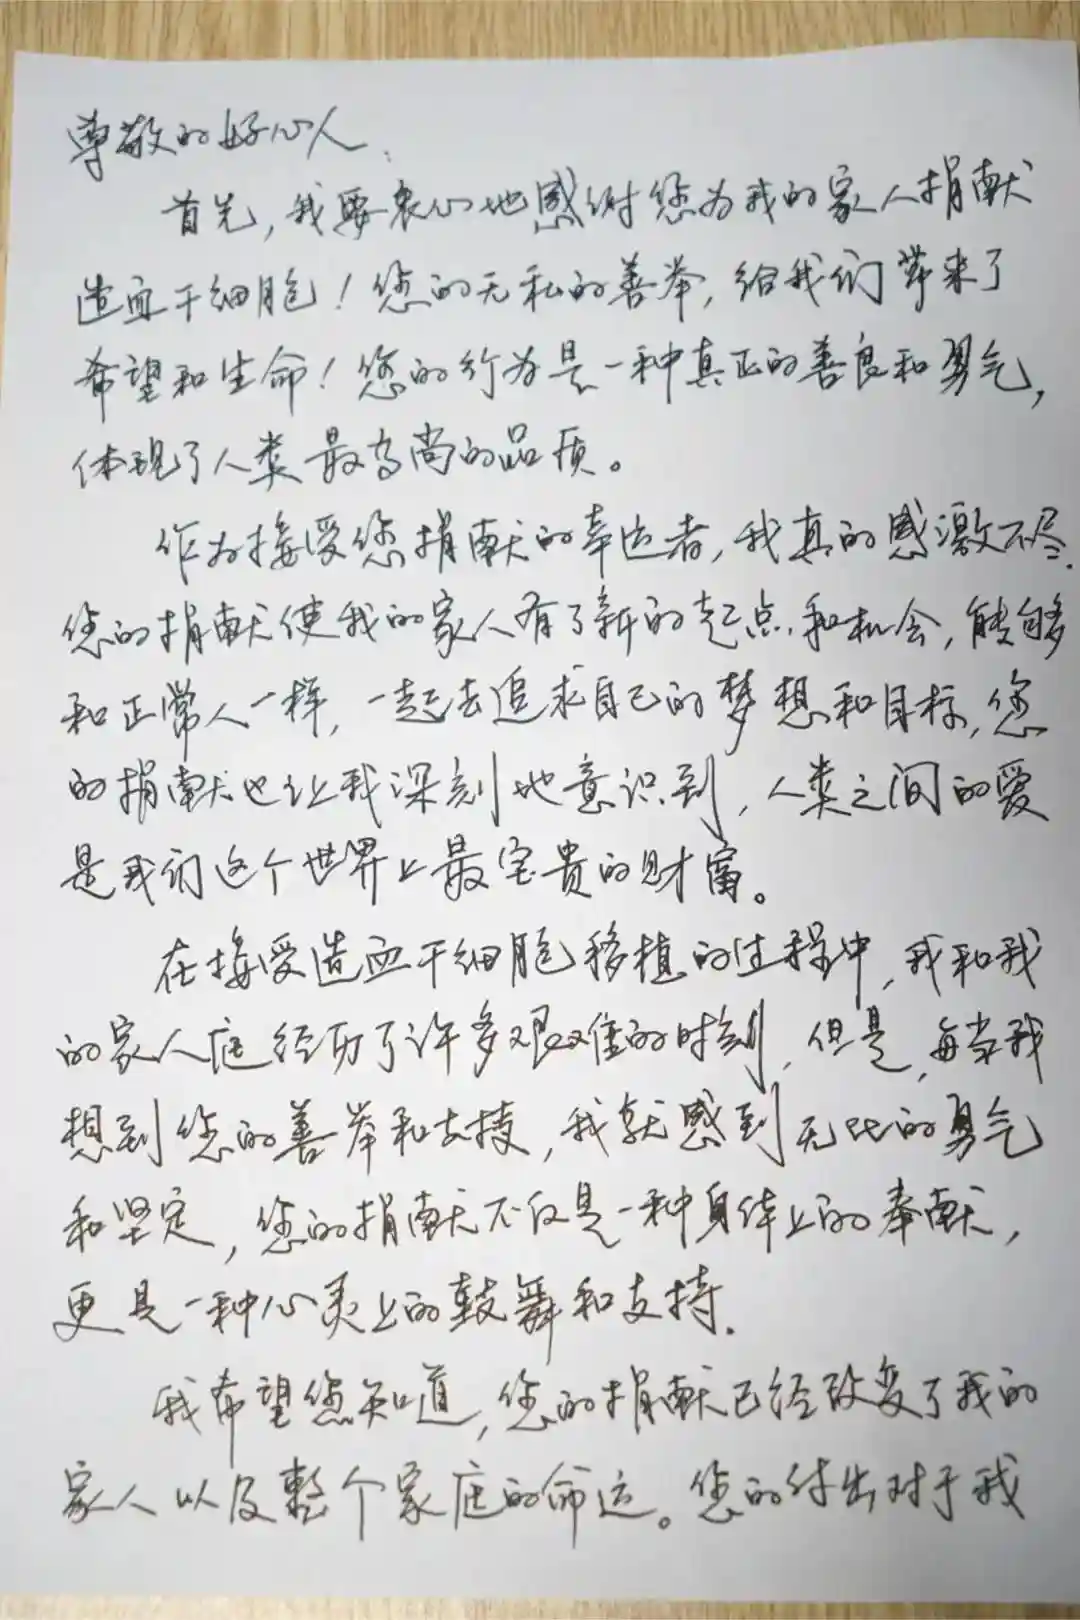 尊敬的好心人:
首先,我要衷心地感谢您为我的家人捐献
造血干细胞!您的无私的善举,给我们带来了
希望和生命!您的行为是一种真正的善良和勇气,
体现了人类最高尚的品质。
作为接受您捐献的幸运者,我真的感激不尽.
您的捐献使我的家人有了新的起点和机会,能够
和正常人一样,一起去追求自己的梦想和目标,您
的捐献也让我深刻地意识到,人类之间的爱
是我们这个世界上最宝贵的财富。
在接受造血干细胞移植的过程中,我和我
的家人庭经历了许多艰难的时刻,但是,每当我
想到您的善举和支持,我就感到无比的勇气
和坚定,您的捐献不仅是一种身体上的奉献,
更是一种心灵上的鼓舞和支持.
我希望您知道,您的捐献已经改变了我的
家人以及整个家庭的命运。您的付出对于我